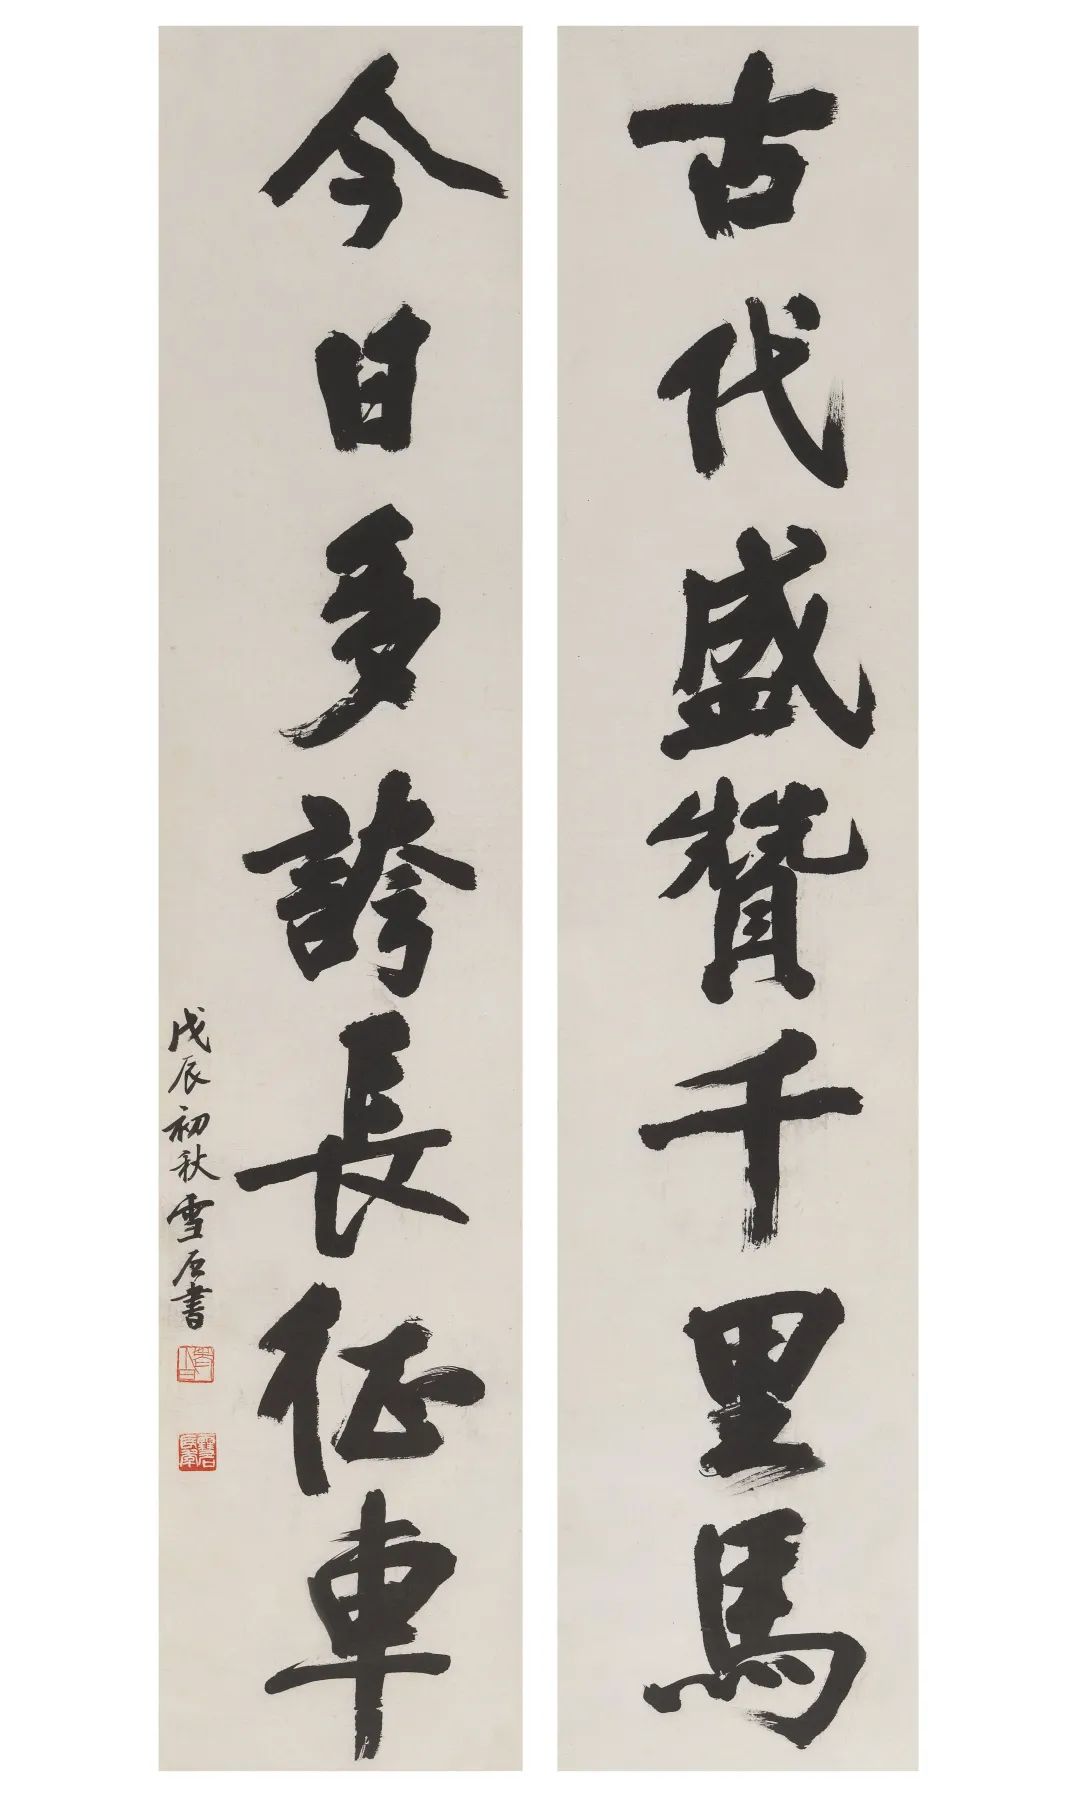 古代盛赞千里馬
今日多誇長征車
戊辰初秋雪石書